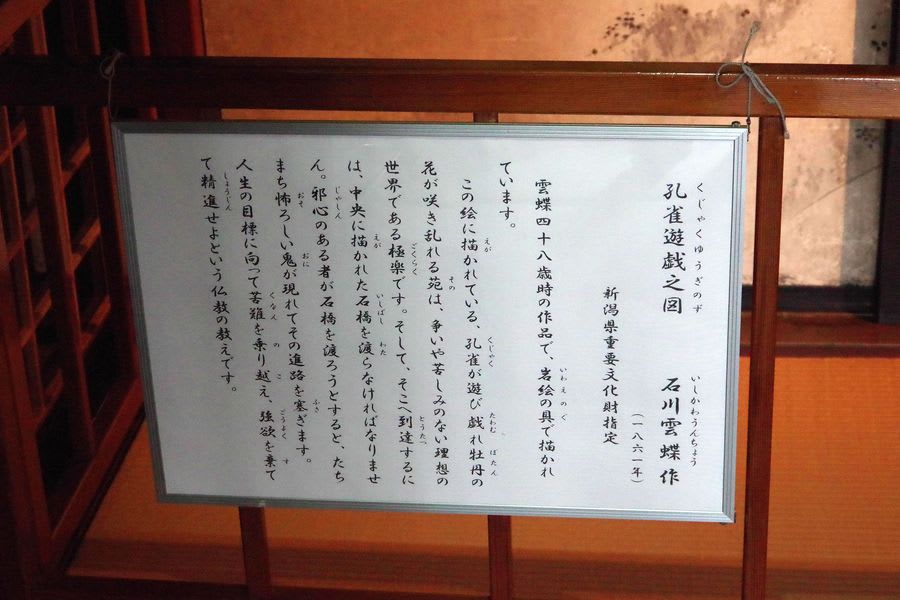 孔雀遊戯之図 石川雲蝶作
くじゃくゆうぎのず いしかわうんちょう
(一八六一年)
新潟県重要文化財指定
雲蝶四十八歳時の作品で、岩絵の具で描かれ
いわえのぐ
ています。
この絵に描かれている、孔雀が遊び戯れ牡丹の
えが くじゃく たわむ ぼたん
花が咲き乱れる苑は、争いや苦しみのない理想の
その
世界である極楽です。そして、そこへ到達するに
ごくらく とうたつ
は、中央に描かれた石橋を渡らなければなりませ
えが いしばし わた
ん。邪心のある者が石橋を渡ろうとすると、たち
じゃしん
まち怖ろしい鬼が現れてその進路を塞ぎます。
おそ おに ふさ
人生の目標に向って苦難を乗り越え、強欲を棄て
くなん の こ ごうよく す
て精進せよという仏教の教えです。
しょうじん